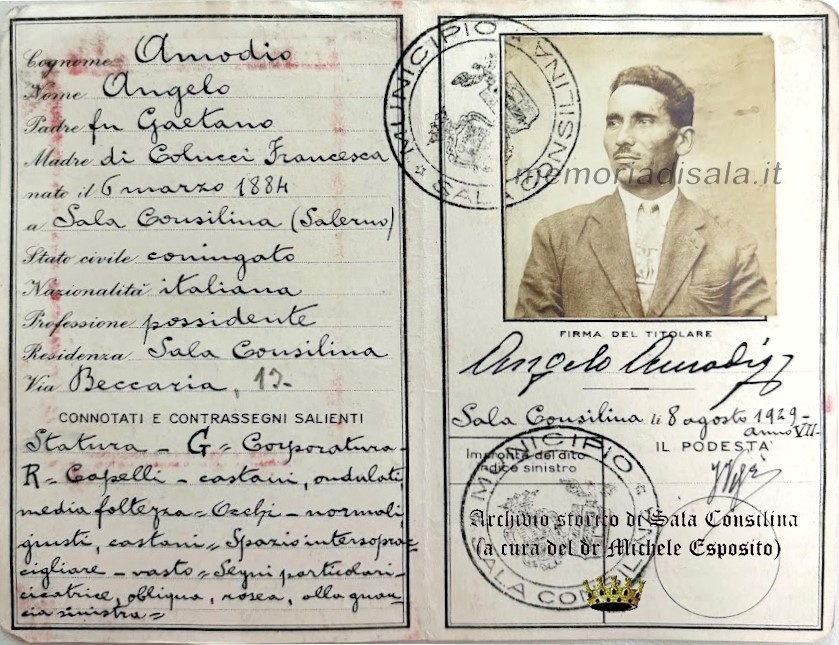 Cognome Amodio
Nome Angelo
Padre fu Gaetano
Madre di Colucci Francesca
nato il 6 marzo 1884
a Sala Consilina (Salerno)
Stato civile coniugato
Nazionalità italiana
Professione possidente
Residenza Sala Consilina
Via Beccaria, 17-
CONNOTATI E CONTRASSEGNI SALIENTI
Statura - G = Corporatura-
R = Capelli - castani, ondulati,
media foltezza = Occhi - normali
giusti, castani = Spazio intersoprac-
cigliare - vasto = Segni particolari-
cicatrice, obliqua, rosea, alla guan-
cia sinistra =
MUNICIPIO
SALA CONSILINA
memoriadisala.it
FIRMA DEL TITOLARE
Angelo Amodio
Sala Consilina li 8 agosto 1929-
anno VII-
IL PODESTÀ
Impronta del dito
indice sinistro
MUNICIPIO
SALA CONSILINA
Archivio storico di Sala Consilina
(a cura del dr Michele Esposito)